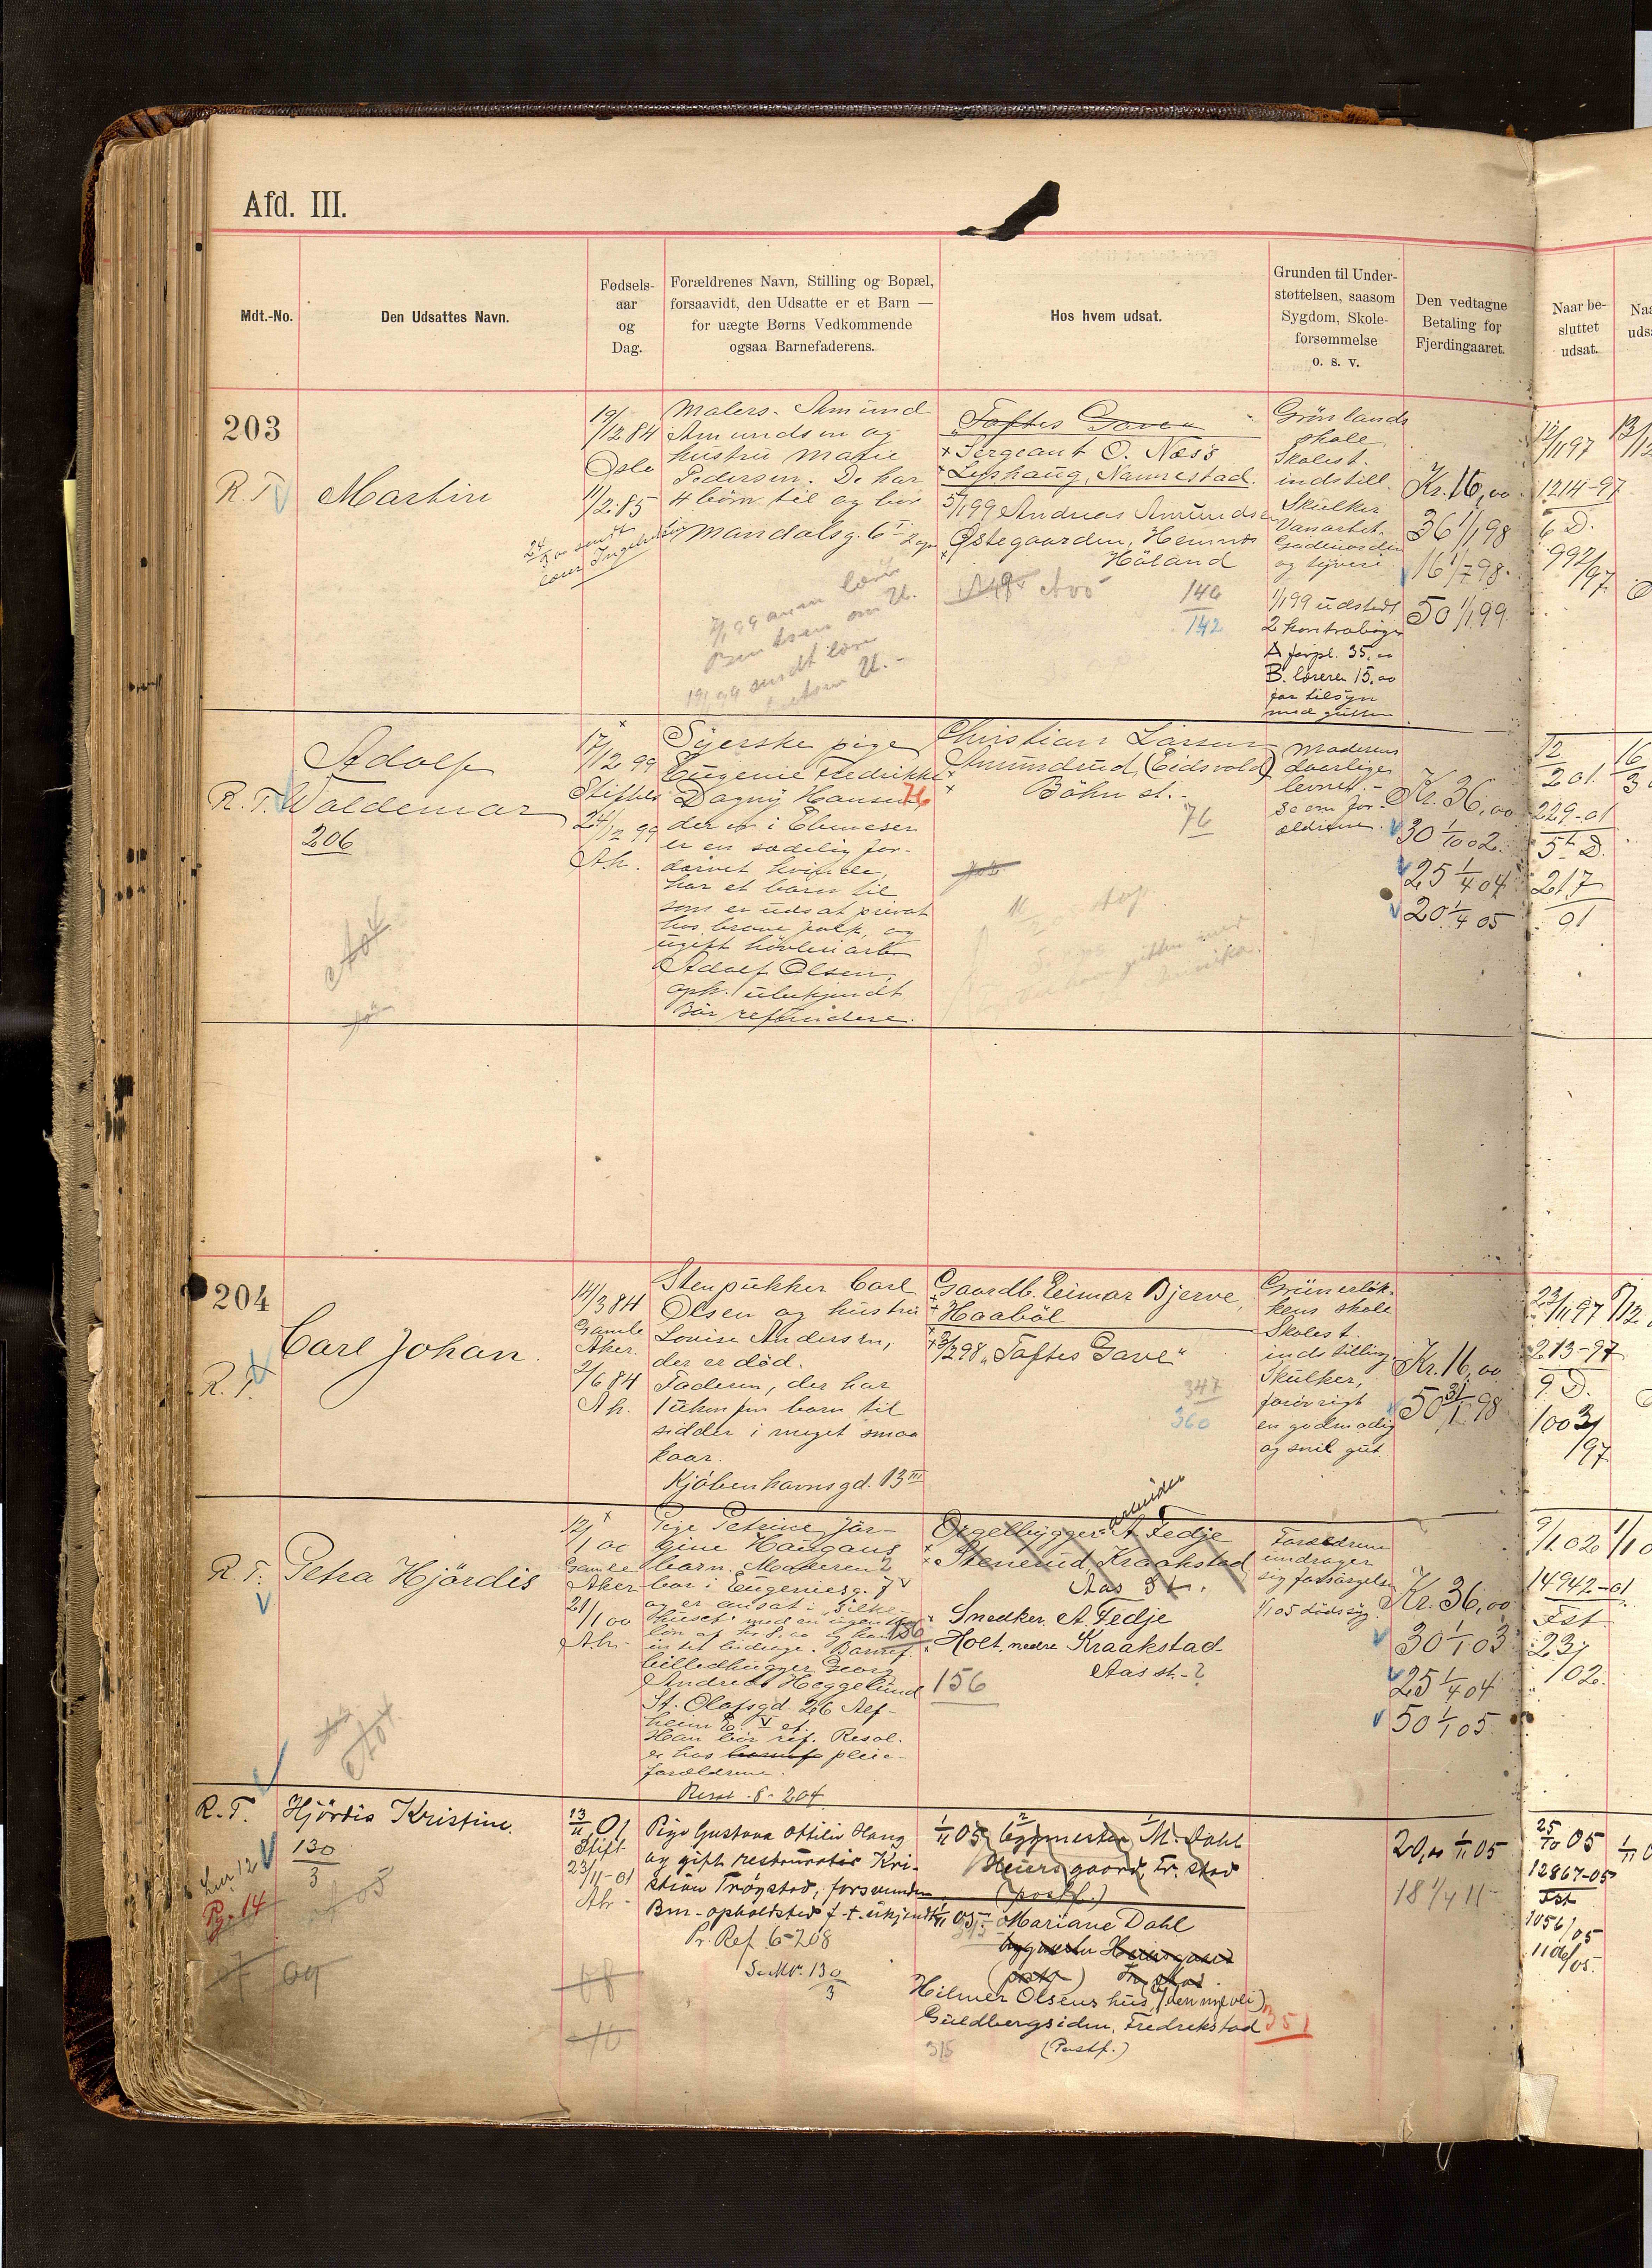 Afd. III.
Mdt.-No.
Den Udsattes Navn.
Fødsels-
aar
og
Dag.
Forældrenes Navn, Stilling og Bopæl,
forsaavidt, den Udsatte er et Barn —
for uægte Børns Vedkommende
ogsaa Barnefaderens.
Hos hvem udsat.
Grunden til Under-
støttelsen, saasom
Sygdom, Skole-
forsømmelse
o. s. v.
Den vedtagne
Betaling for
Fjerdingaaret.
Naar be-
sluttet
udsat.
203
R. T.
Martin
19/12 84
Oslo
11/2 85
Malers. Amund
Amundsen og
hustru Marie
Pedersen. De har
4 børn til og bor
Mandalsg. 6
"Toftes Gave"
Sergeant O. Næss
Lyshaug, Nannestad.
5/1 99 Andreas Amundsen
Østegaarden, Hemnes
Höland
146
142
Grönlands
skole
Skolest.
indstill.
Skulker
Vanartet.
Gadeuorden
og tyveri
1/1 99 udstedt
2 kontraböger
A forpl. 35,00
B. læreren 15,00
for tilsyn
med gutten
Kr. 16,00
36 1/1 98
16 1/7 98.
50 1/1 99
12/11 97
1214-97
6 D.
992/97
Adolf
R. T. Waldemar
206
17/12 99
Stiftels
24/12 99
Ah.
Syerske pige
Eugenie Fredrikke
Dagny Hansen
76
der er i Ebeneser
er en sædelig for-
darvet kvinde,
har et barn til
som er udsat privat
hos brave folk, og
ugift høvleriarb
Adolf Olsen,
oph. ubekjendt
Bör refundere.
Christian Larsen
Amundrud, (Eidsvold)
Böhn st.
76
Moderens
daarlige
levnet.
Kr. 36,00
30 1/10 02.
25 1/4 04
20 1/4 05
12/2 01.
229-01
5t D.
217/01
204
R. T.
Carl Johan.
14/3 84
Gamle
Aker.
2/6 84
Ah.
Stenpukker Carl
Olsen og hustru
Lovise Andersen,
der er död.
Faderen, der har
1 ukonf barn til
sidder i meget smaa
kaar.
Kjöbenhavnsgd. 13 III
Gaardb. Einar Bjerve,
Haaböl
3/2 98 "Toftes Gave"
347
360
Grünerløk-
kens skole
Skolest.
indstilling
Skulker,
forövrigt
en godmodig
og snil gut.
Kr. 16,00
50 31/1 98
23/11 97
213-97
9. D.
1003/97
R. T. Petra Hjördis
12/1 00
Gamle
Aker
21/1 00
Ah.
Pige Petrine Jör-
gine Haugans
barn. Moderen
bor i Eugeniesg. 7 V
og er ansat i "Silke-
huset"
billedhugger Georg
Andreas Heggelund
St. Olafsgd. 26
Han bör ref. Resol.
er hos pleie-
forældrene.
Resol. 8-204
Orgelbygger arbeider A. Fedje
Stenerud, Kraakstad
Aas St.
Snedker A. Fedje
Holt nedre Kraakstad
Aas st.-?
156
Forældrene
undrager
sig forsørgelse
Kr. 36,00
30 1/1 03
25 1/4 04
50 1/1 05
9/1 02
14942-01
Fst
23/02.
R. T. Hjördis Kristine.
130/3
Pg. 14
09
08
10
13/11 01
Stift
23/11-01
Ah
Pige Gustava Ottilie Haug
og gift restauratör Kri-
stian Trøgstad, forsvunden
Bm-opholdsted f. t. ukjendt
Pr. Ref. 6-208
130/3
1/11 05 Bygmester M. Dahl
Heiersgaard, Fr.stad
(postf.)
1/11 05 - Mariane Dahl
bygmester Heiersgaard
(postf) Fr.stad.
Hilmer Olsens hus, (den nye vei)
Guldbergsiden, Fredrekstad
351
(Postf.)
315
20,00 1/11 05
18 1/4 11
25/10 05
12867-05
Fst
1056/05
1106/05.